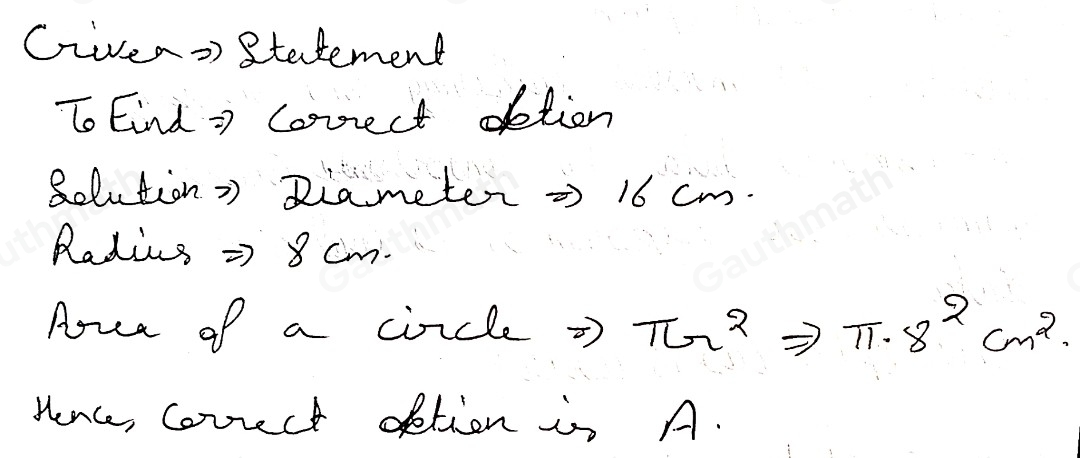 Given ⇒ Statement
To Find ⇒ Correct option
Solution ⇒ Diameter ⇒ 16 cm.
Radius ⇒ 8 cm.
Area of a circle ⇒ πr² ⇒ π·8² cm².
Hence, correct option is A.
Gauthmath
Gauthmath